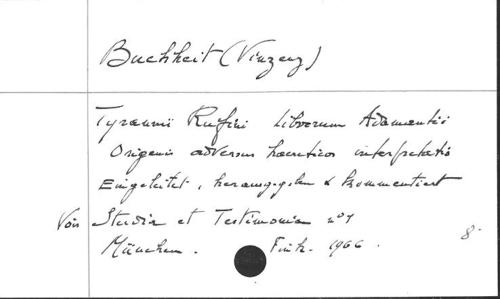 Buchheit (Vinzenz)
Tyrannii Rufini librorum Adamantii
Origenis adversus haereticos interpretatio
Eingeleitet, herausgegeben & kommentiert
Voir Studia et Testimonia n°1
München. Fink. 1966. 8°